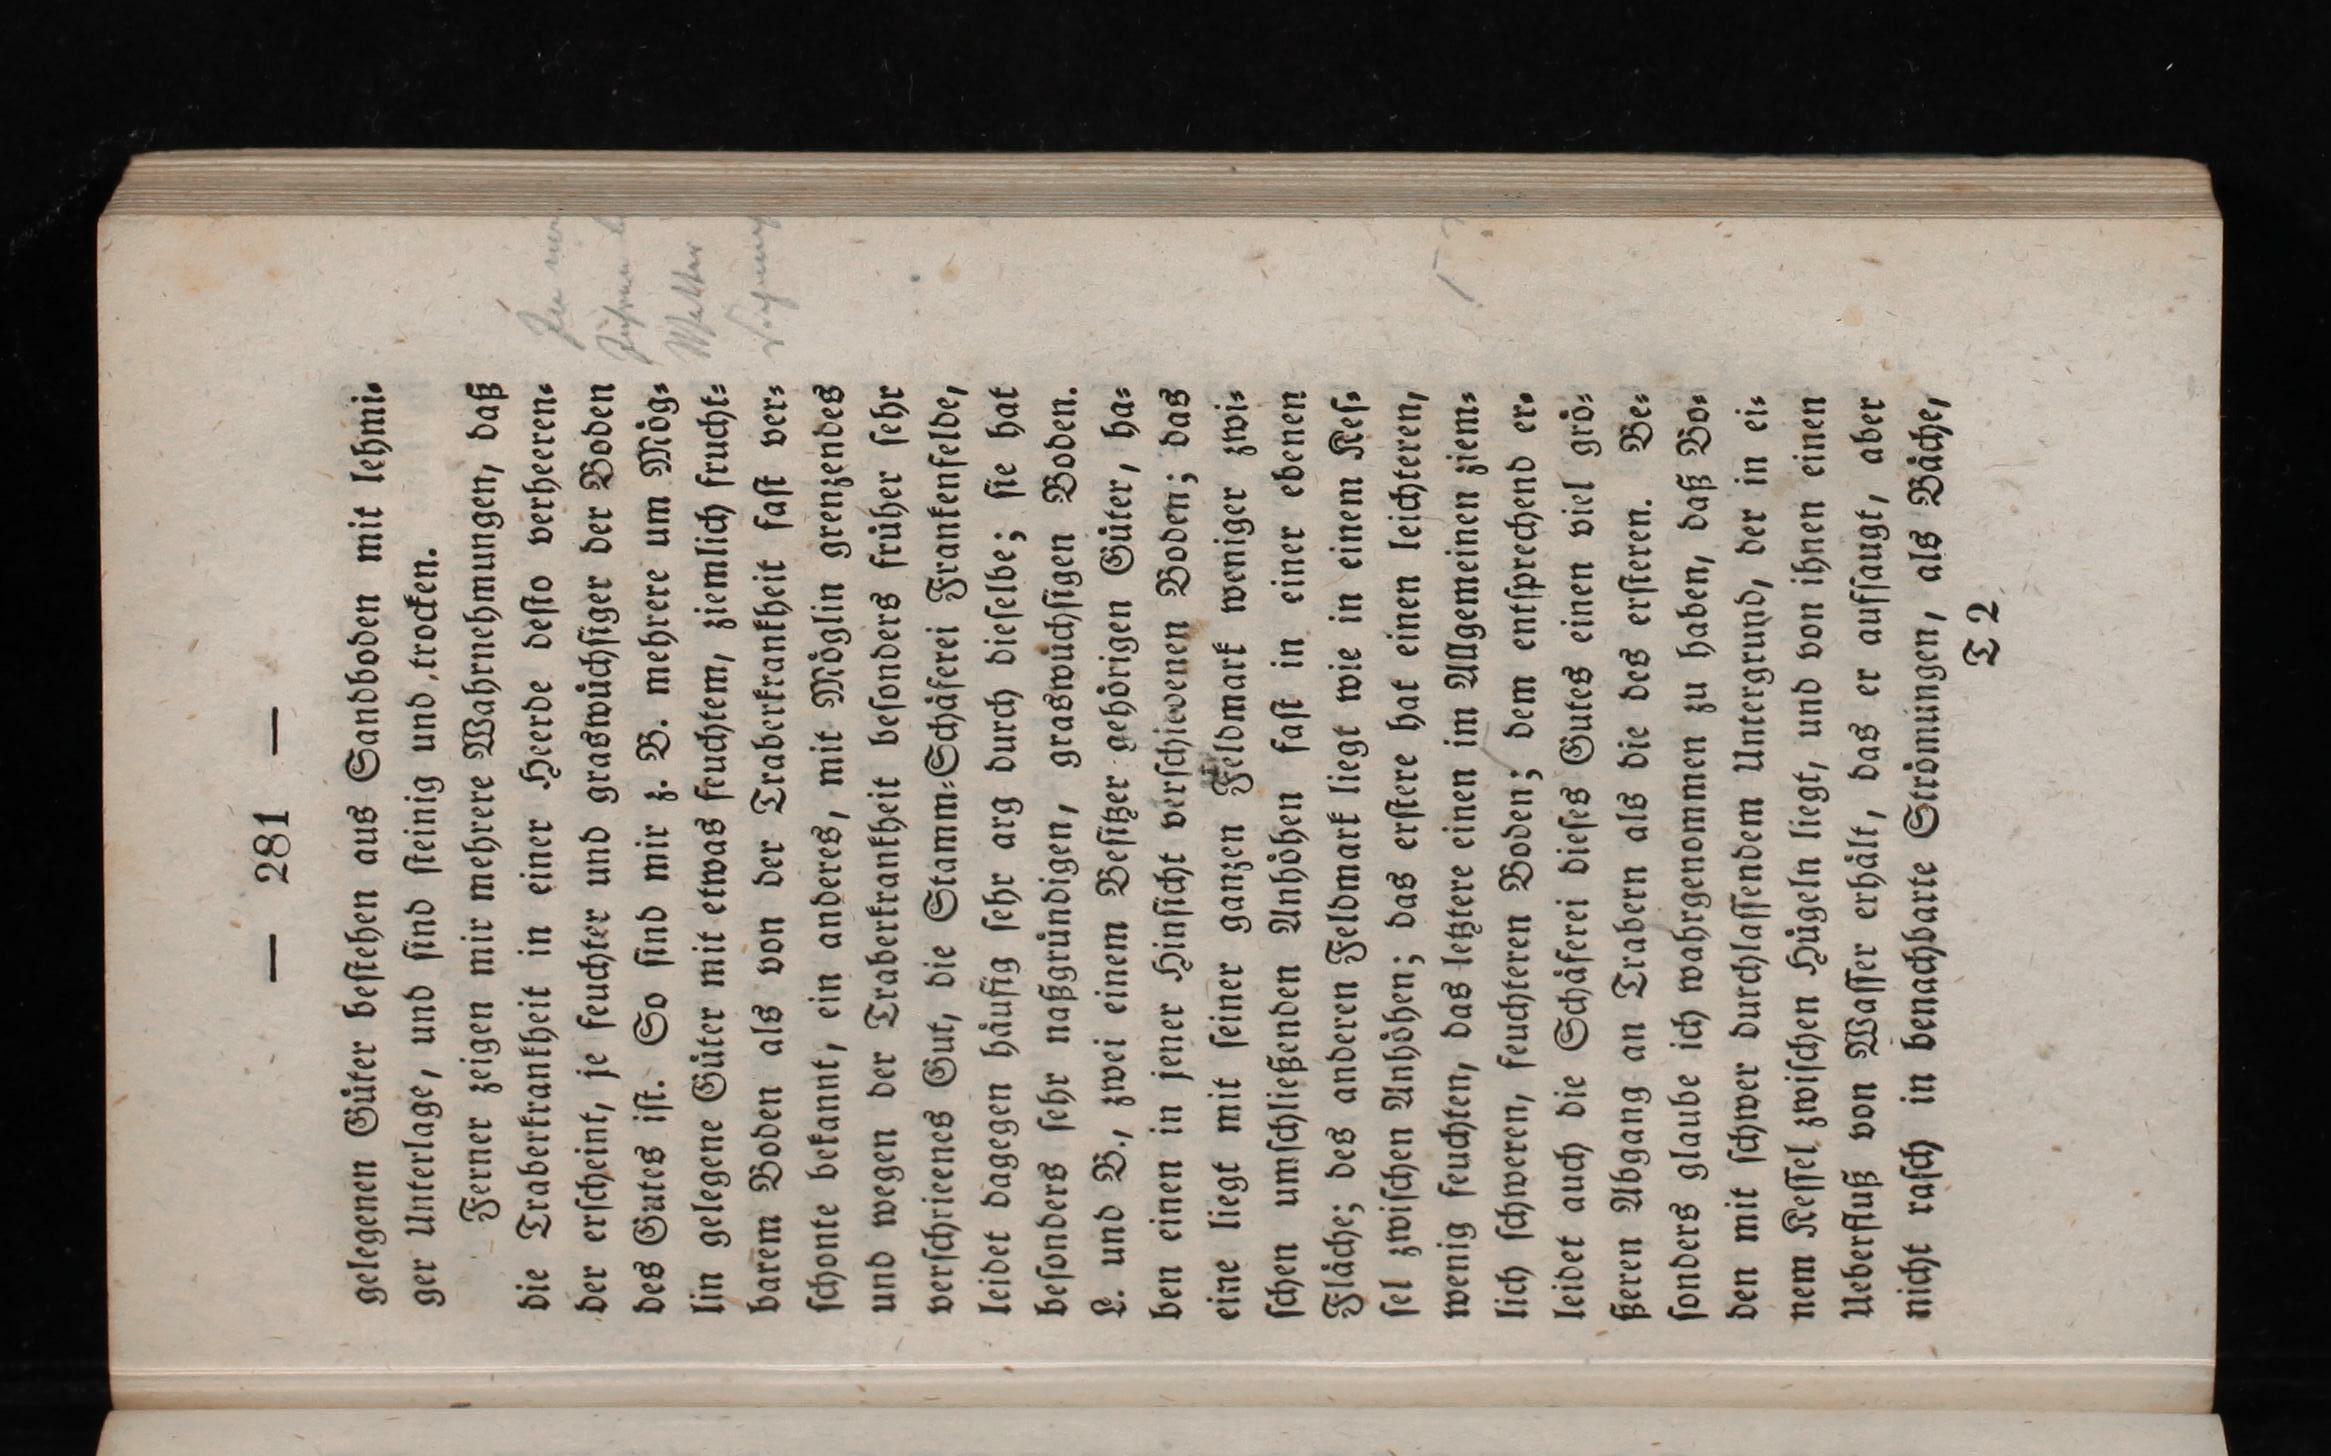 — 281 —
gelegenen Güter beſtehen aus Sandboden mit lehmi⸗
ger Unterlage, und ſind ſteinig und trocken.
Ferner zeigen mir mehrere Wahrnehmungen, daß
die Traberkrankheit in einer Heerde deſto verheeren⸗
der erſcheint, je feuchter und graswüchſiger der Boden
des Gutes iſt. So ſind mir z. B. mehrere um Mög⸗
lin gelegene Güter mit etwas feuchtem, ziemlich frucht⸗
barem Boden als von der Traberkrankheit faſt ver⸗
ſchonte bekannt, ein anderes, mit Möglin grenzendes
und wegen der Traberkrankheit beſonders früher ſehr
verſchrieenes Gut, die Stamm⸗Schäferei Frankenfelde,
leidet dagegen häufig ſehr arg durch dieſelbe; ſie hat
beſonders ſehr naßgründigen, graswüchſigen Boden.
L. und B., zwei einem Beſitzer gehörigen Güter, ha⸗
ben einen in jener Hinſicht verſchiedenen Boden; das
eine liegt mit ſeiner ganzen Feldmark weniger zwi⸗
ſchen umſchließenden Anhöhen faſt in einer ebenen
Fläche; des anderen Feldmark liegt wie in einem Keſ⸗
ſel zwiſchen Anhöhen; das erſtere hat einen leichteren,
wenig feuchten, das letztere einen im Allgemeinen ziem⸗
lich ſchweren, feuchteren Boden; dem entſprechend er⸗
leidet auch die Schäferei dieſes Gutes einen viel grö⸗
ßeren Abgang an Trabern als die des erſteren. Be⸗
ſonders glaube ich wahrgenommen zu haben, daß Bo⸗
den mit ſchwer durchlaſſendem Untergrund, der in ei⸗
nem Keſſel zwiſchen Hügeln liegt, und von ihnen einen
Ueberfluß von Waſſer erhält, das er aufſaugt, aber
nicht raſch in benachbarte Strömungen, als Bäche,
T 2